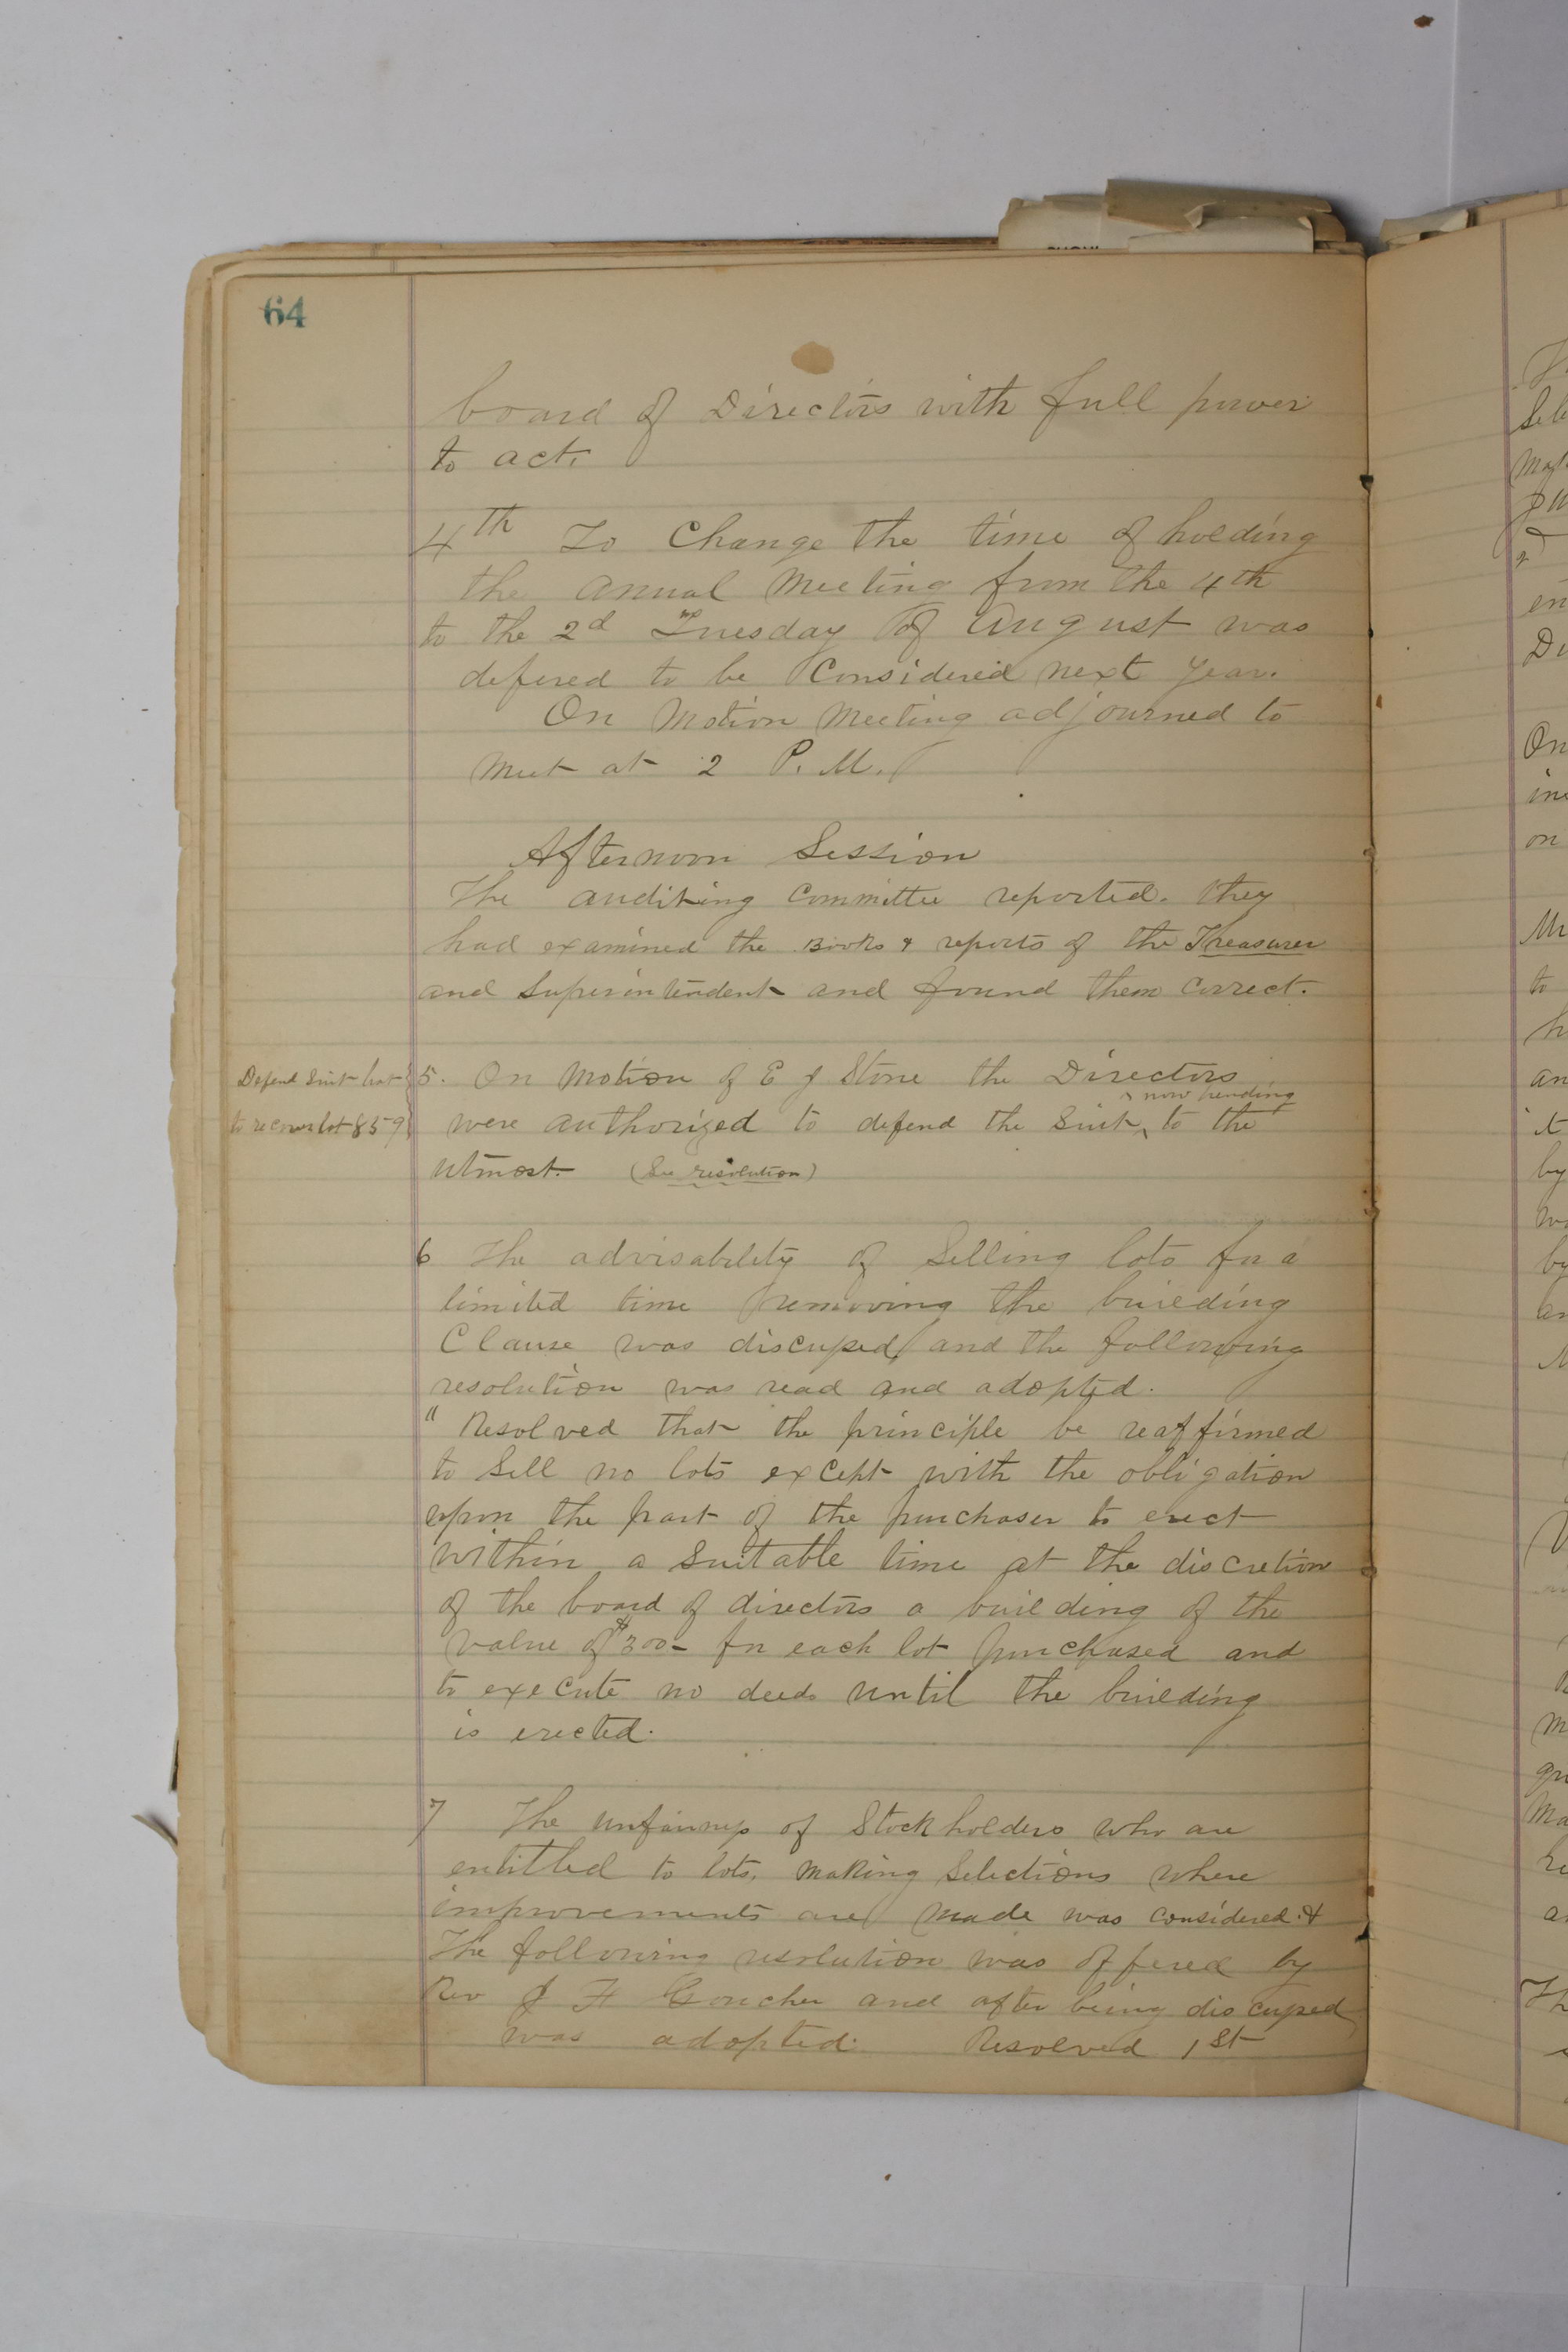 64
board of Directors with full power
to act.
4th To Change the time of holding
the annual Meeting from the 4th
to the 2d Tuesday of August was
defered to be Considered next year.
On Motion Meeting adjourned to
meet at 2 P. M.
Afternoon Session
The auditing Committee reported. they
had examined the Books & reports of the Treasurer
and Superintendent and found them Correct.
Defend Suit
to recover lot 859
5. On Motion of E J Stone the Directors
now pending
were authorized to defend the Suit to the
utmost. (See resolution)
6 The advisability of Selling lots for a
limited time removing the building
Clause was discussed and the following
resolution was read and adopted.
"Resolved that the principle be reaffirmed
to Sell no lots except with the obligation
upon the part of the purchaser to erect
within a Suitable time at the discretion
of the board of directors a building of the
value of $300- for each lot purchased and
to execute no deeds until the building
is erected.
7 The unfairness of Stockholders who are
entitled to lots, making Selections where
improvements are made was considered. &
The following resolution was offered by
Rev J F Goucher and after being discussed
was adopted. Resolved 1st